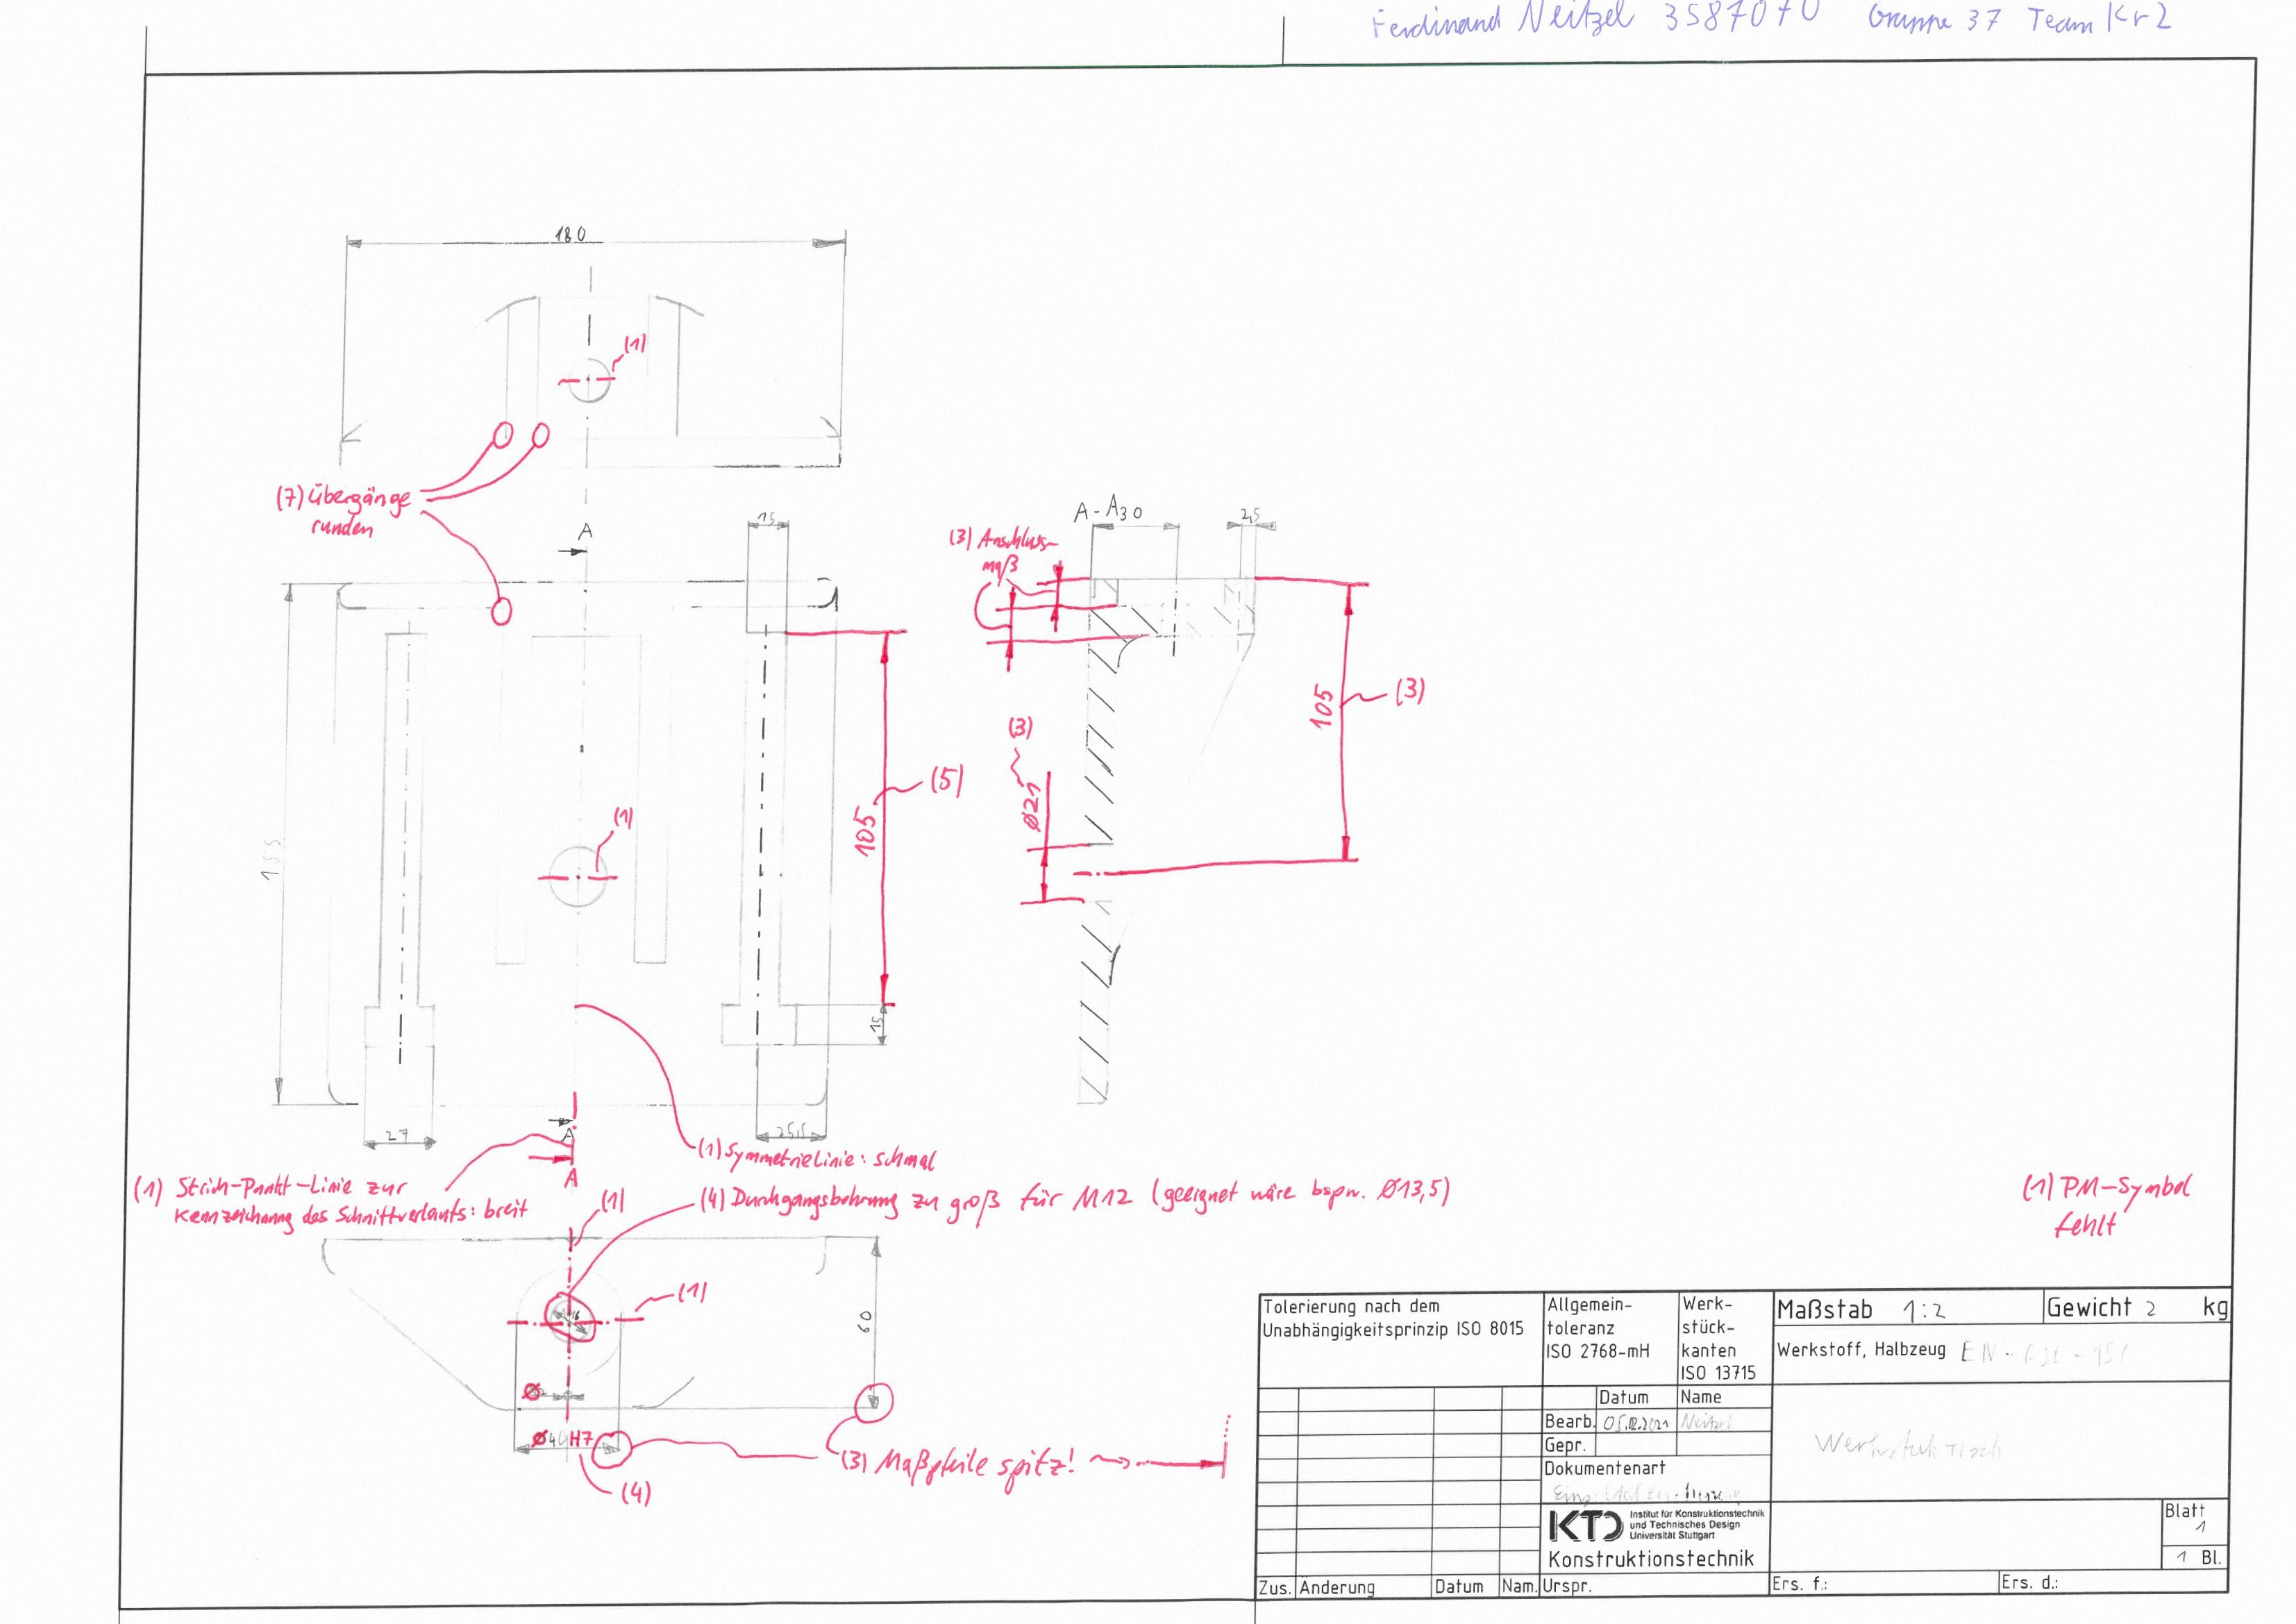 Ferdinand Neitzel 3587070 Gruppe 37 Team Kr2
180
(1)
(7) Übergänge
runden
A
15
A-A
30
2,5
(3) Anschluss-
maß
105
(3)
(3)
Ø21
(5)
105
(1)
155
15
27
A
A
25,5
(1) Symmetrielinie: schmal
(1) Strich-Punkt-Linie zur
Kennzeichnung des Schnittverlaufs: breit
(1)
(4) Durchgangsbohrung zu groß für M12 (geeignet wäre bspw. Ø13,5)
(1) PM-Symbol
fehlt
(1)
60
Ø
Ø40H7
(4)
(3) Maßpfeile spitz!
Tolerierung nach dem
Unabhängigkeitsprinzip ISO 8015
Allgemein-
toleranz
ISO 2768-mH
Werk-
stück-
kanten
ISO 13715
Maßstab 1:2
Gewicht 2 kg
Werkstoff, Halbzeug
Datum
Name
Bearb. 05.12.2021 Neitzel
Gepr.
Dokumentenart
KTD
Institut für Konstruktionstechnik
und Technisches Design
Universität Stuttgart
Konstruktionstechnik
Blatt
1
1 Bl.
Zus. Änderung Datum Nam. Urspr. Ers. f.: Ers. d.: